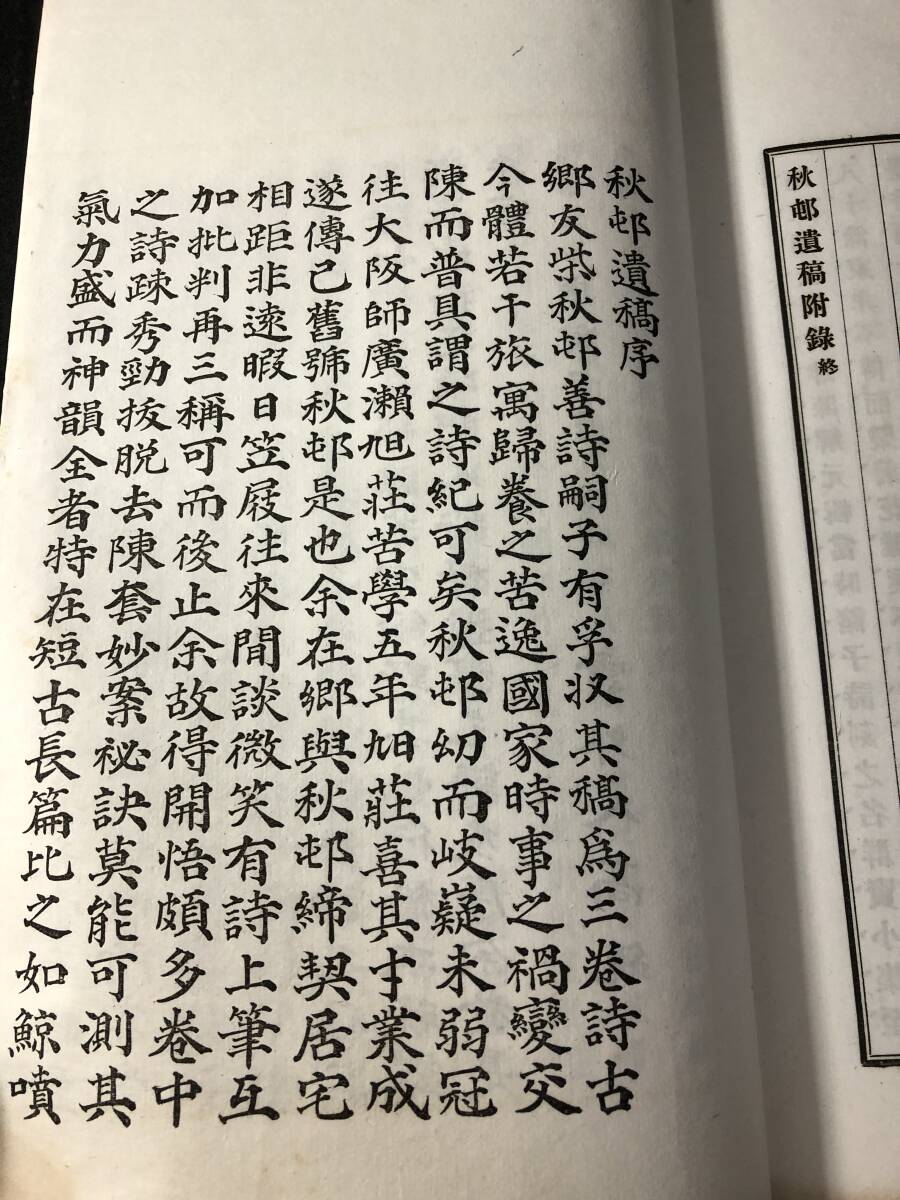 秋邨遺稿附錄終
秋邨遺稿序
鄉友柴秋邨善詩嗣子有孚収其稿爲三卷詩古
今體若干旅寓歸養之苦逸國家時事之禍變交
陳而普具謂之詩紀可矣秋邨幼而岐嶷未弱冠
往大阪師廣瀨旭莊苦學五年旭莊喜其才業成
遂傳己舊號秋邨是也余在鄉與秋邨締契居宅
相距非遠暇日笠屐往來閒談微笑有詩上筆互
加批判再三稱可而後止余故得開悟頗多卷中
之詩疎秀勁拔脫去陳套妙案祕訣莫能可測其
氣力盛而神韻全者特在短古長篇比之如鯨噴